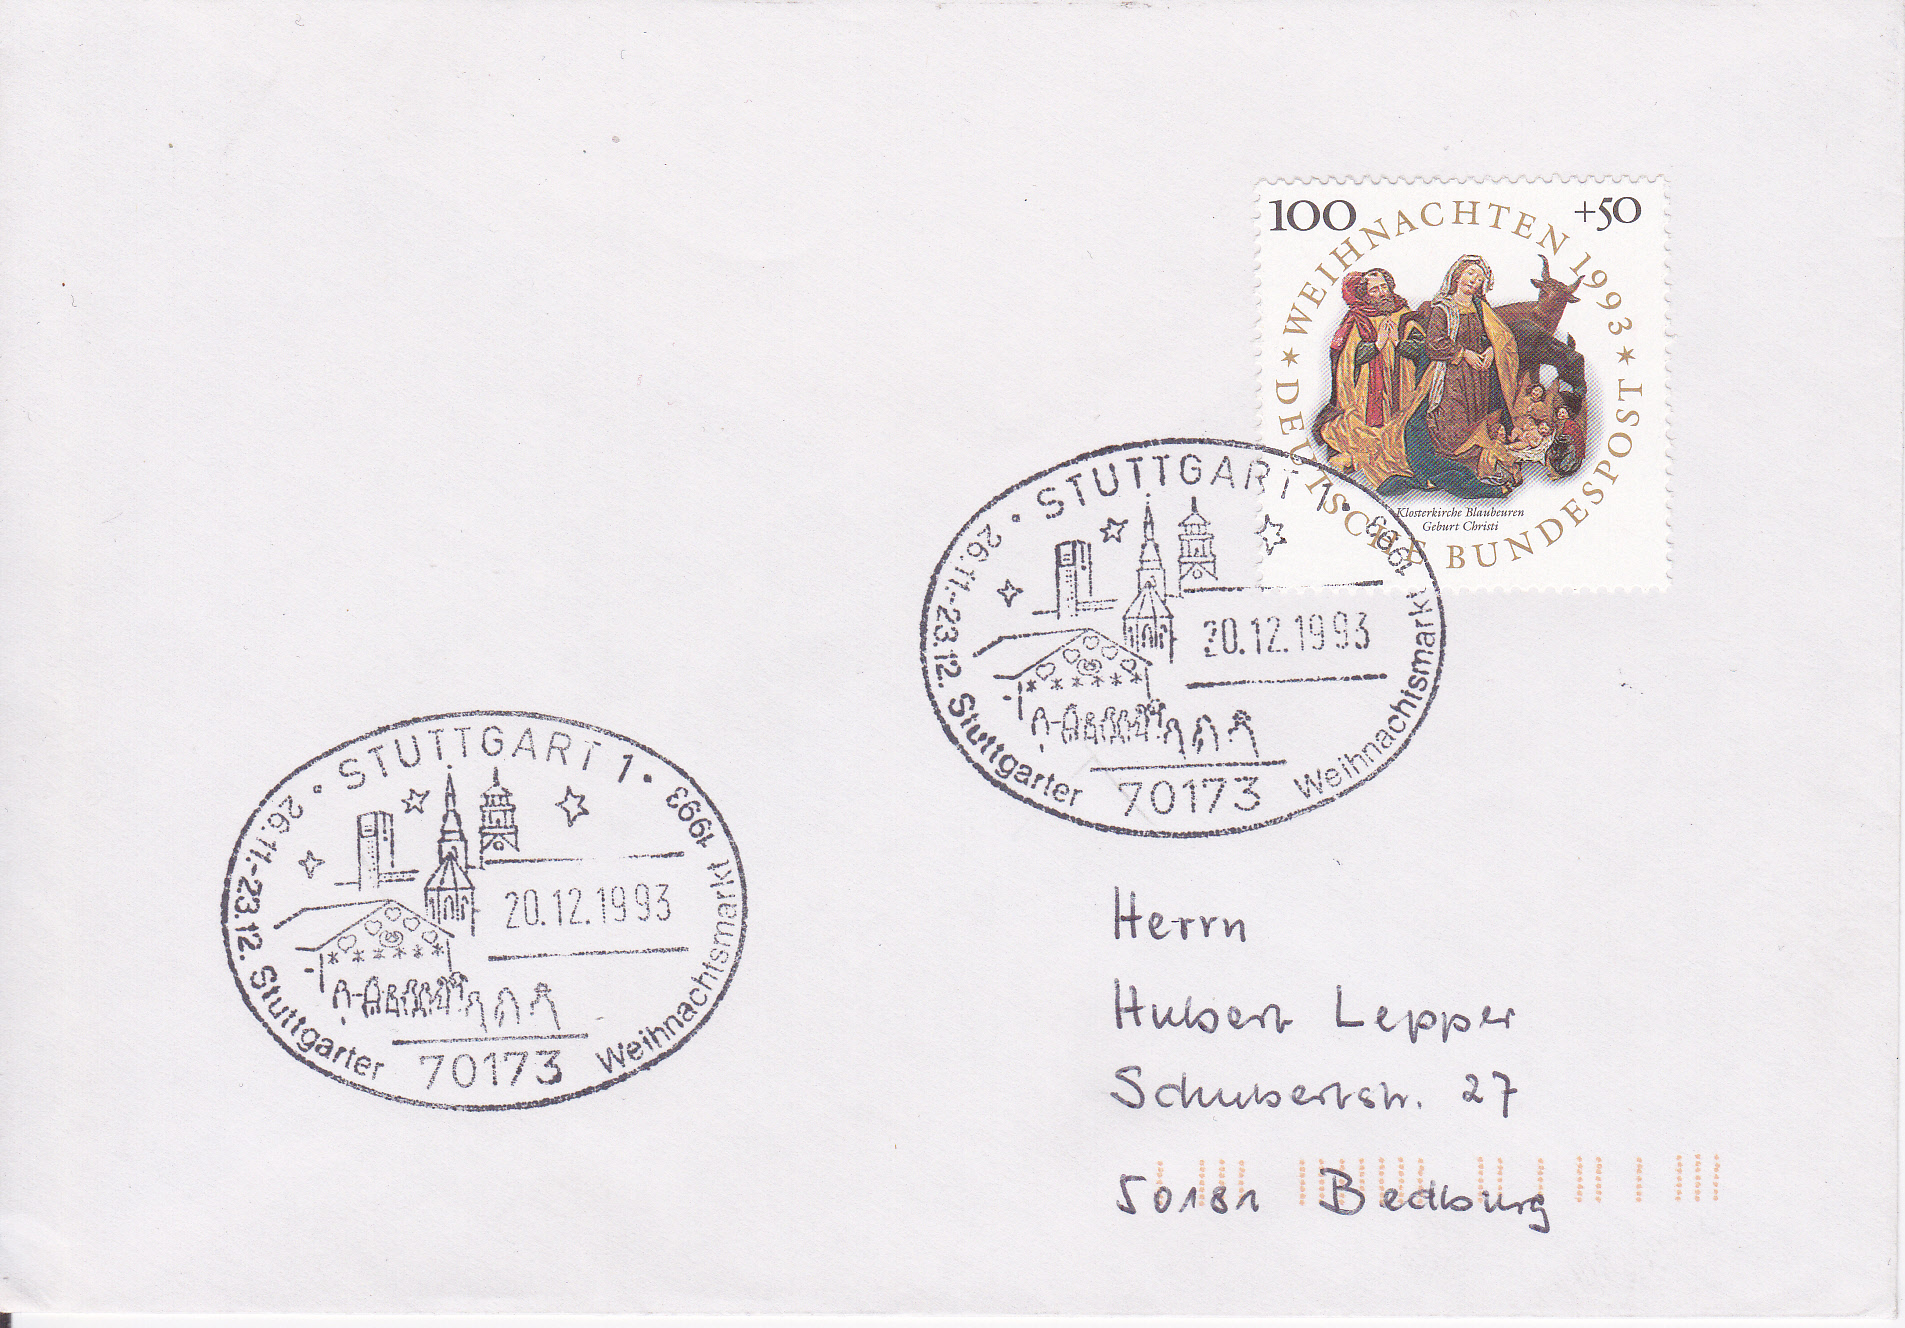 100 +50
* WEIHNACHTEN 1993 *
DEUTSCHE BUNDESPOST
Klosterkirche Blaubeuren
Geburt Christi
• STUTTGART 1 •
26.11.-23.12. Stuttgarter Weihnachtsmarkt 1993
20.12.1993
70173
• STUTTGART 1 •
26.11.-23.12. Stuttgarter Weihnachtsmarkt 1993
20.12.1993
70173
Herrn
Hubert Lepper
Schubertstr. 27
50181 Bedburg